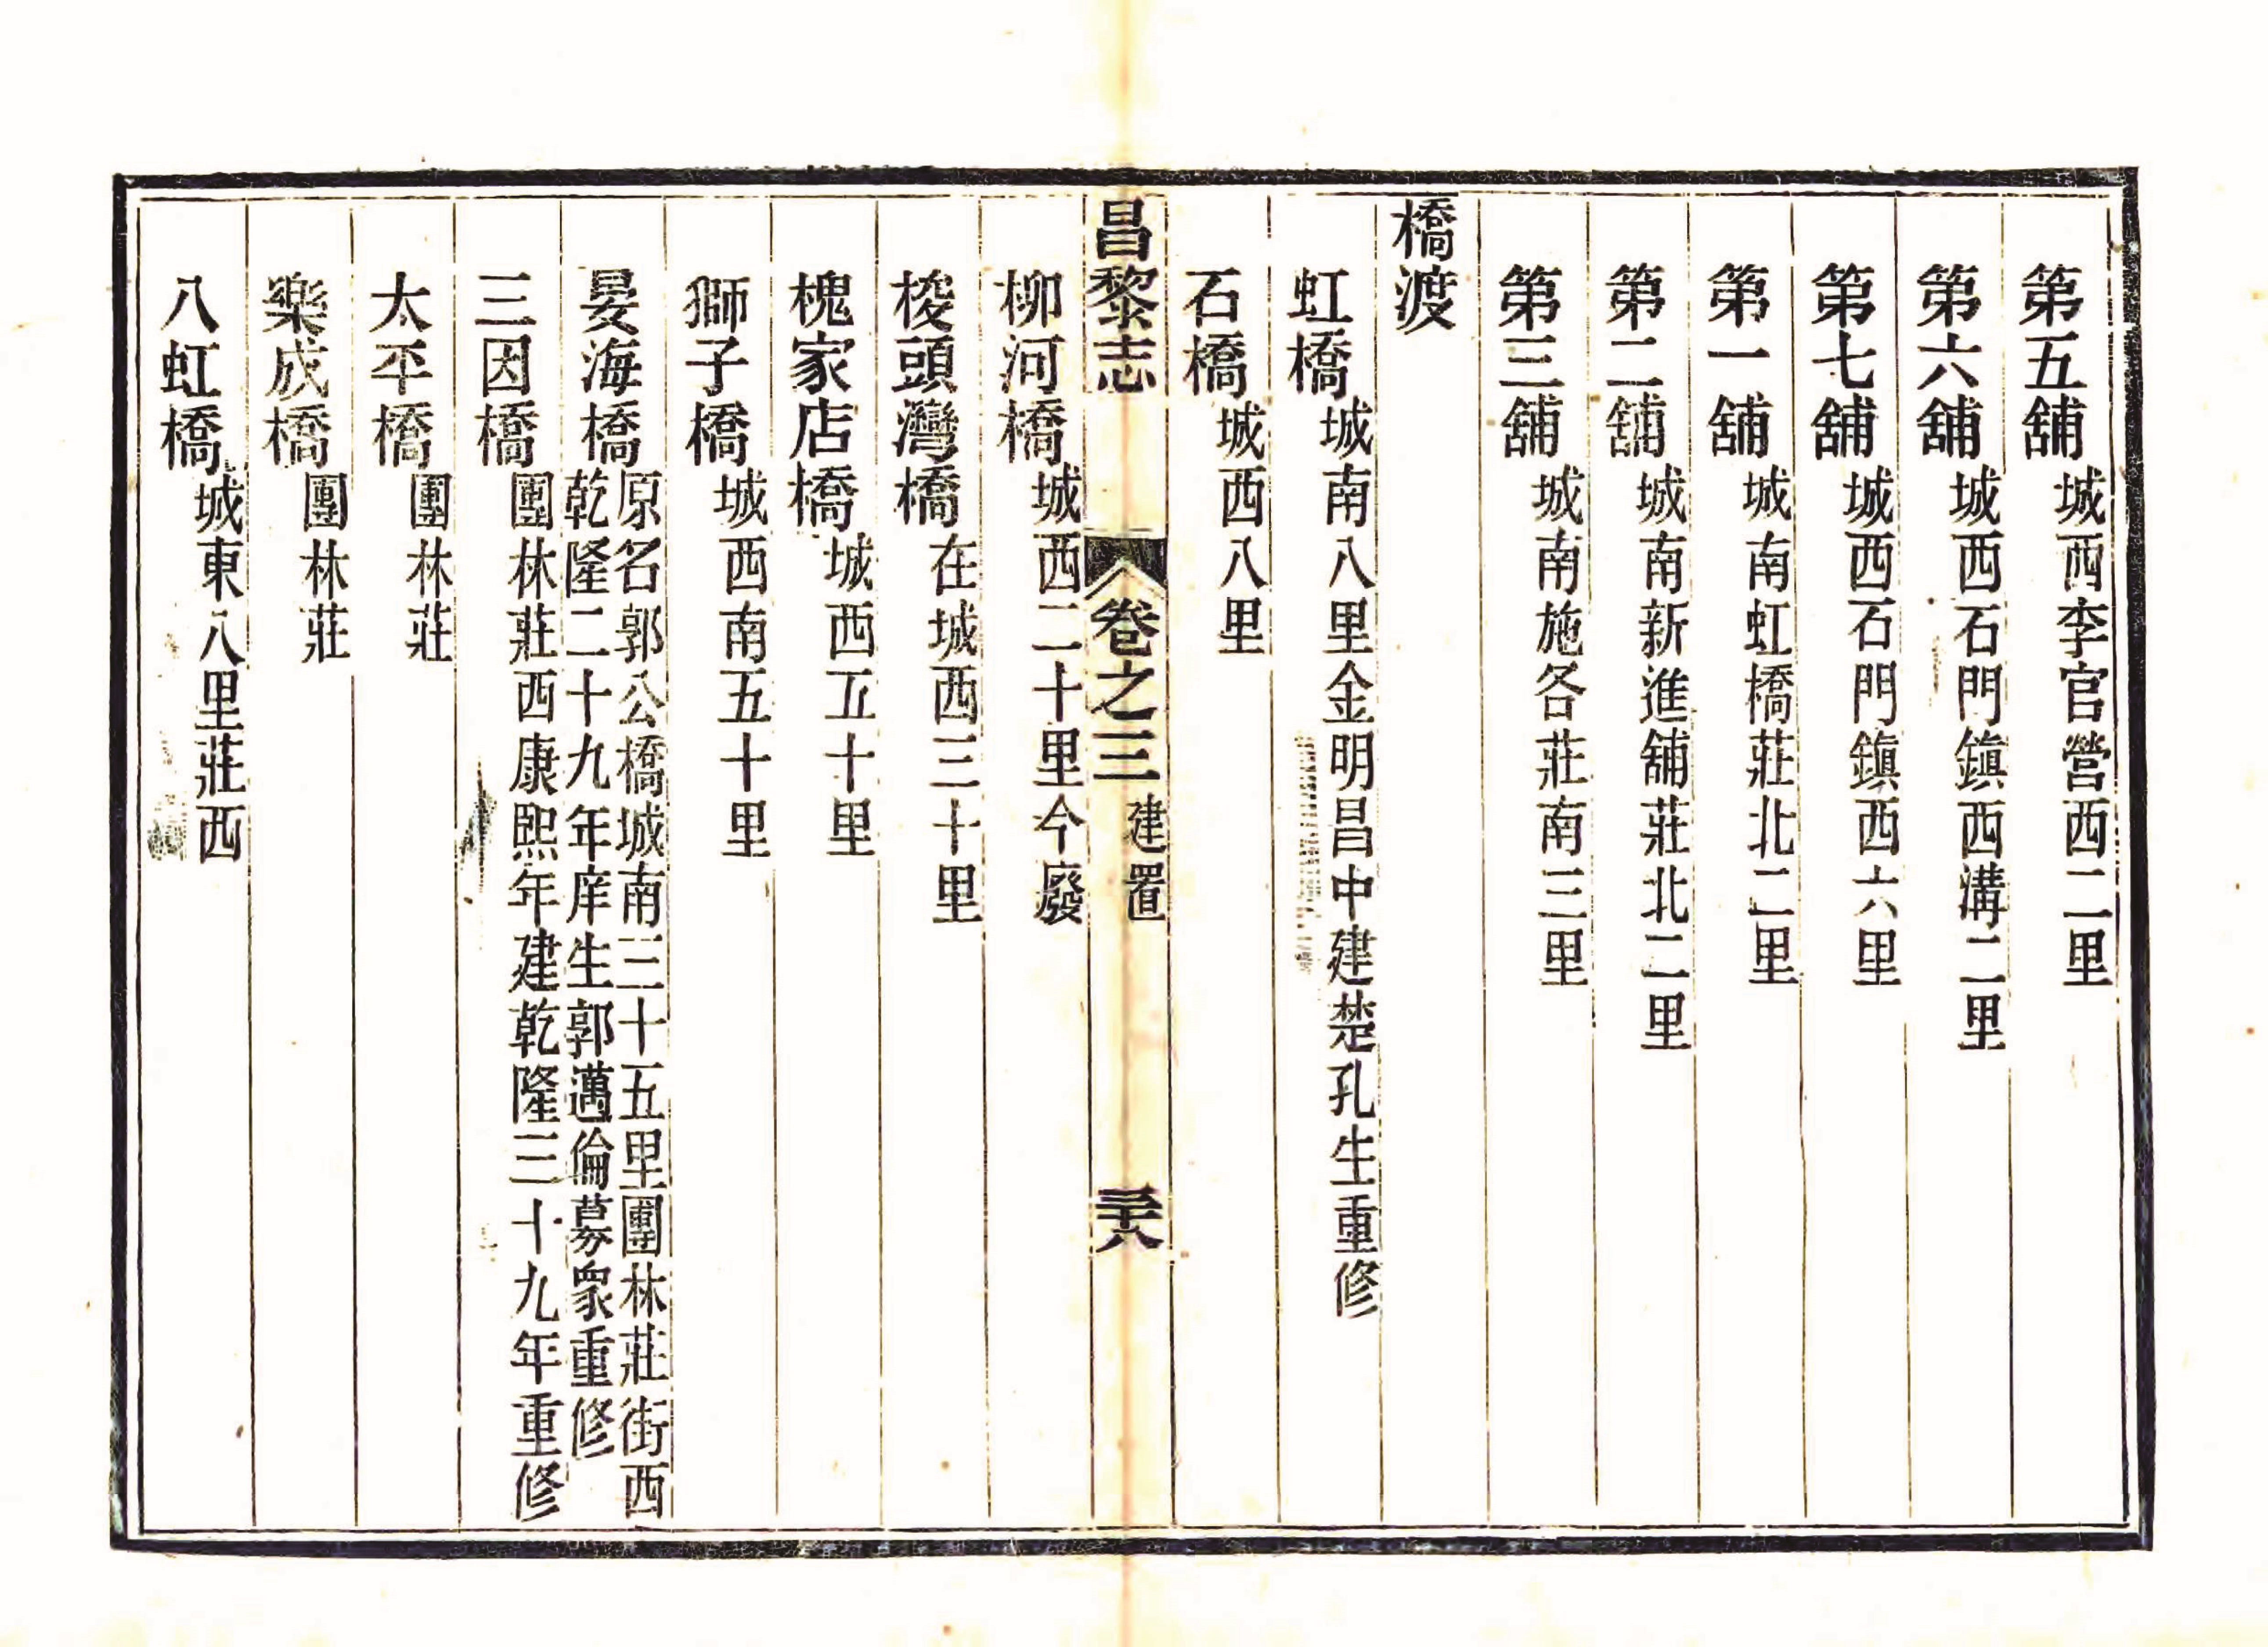 第五舖城西李官營西二里
第六舖城西石門鎮西溝二里
第七舖城西石門鎮西六里
第一舖城南虹橋莊北二里
第二舖城南新進舖莊北二里
第三舖城南施各莊南三里
橋渡
虹橋城南八里金明昌中建楚孔生重修
石橋城西八里
昌黎志 卷之三 建置 三十八
柳河橋城西二十里今廢
梭頭灣橋在城西三十里
槐家店橋城西五十里
獅子橋城西南五十里
晏海橋原名郭公橋城南三十五里團林莊街西
乾隆二十九年庠生郭邁倫募衆重修
三因橋團林莊西康熙年建乾隆三十九年重修
太平橋團林莊
樂成橋團林莊
八虹橋城東八里莊西